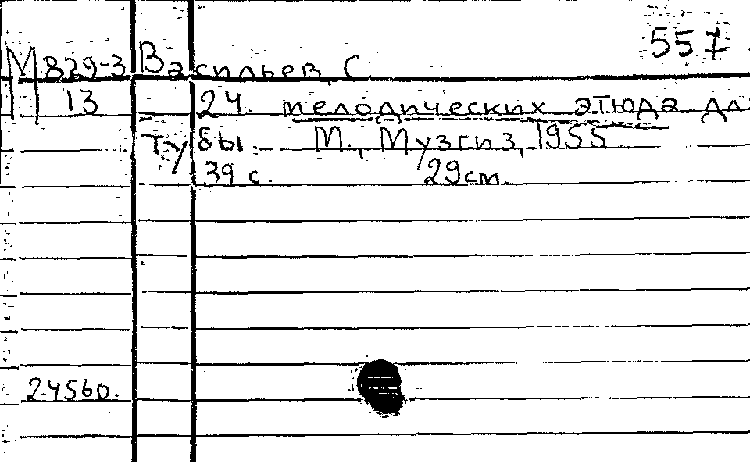 557
М829-3 Васильев, С
13 24 мелодических этюда дл
тубы. М., Музгиз, 1955
39 с. 29см.
24560.